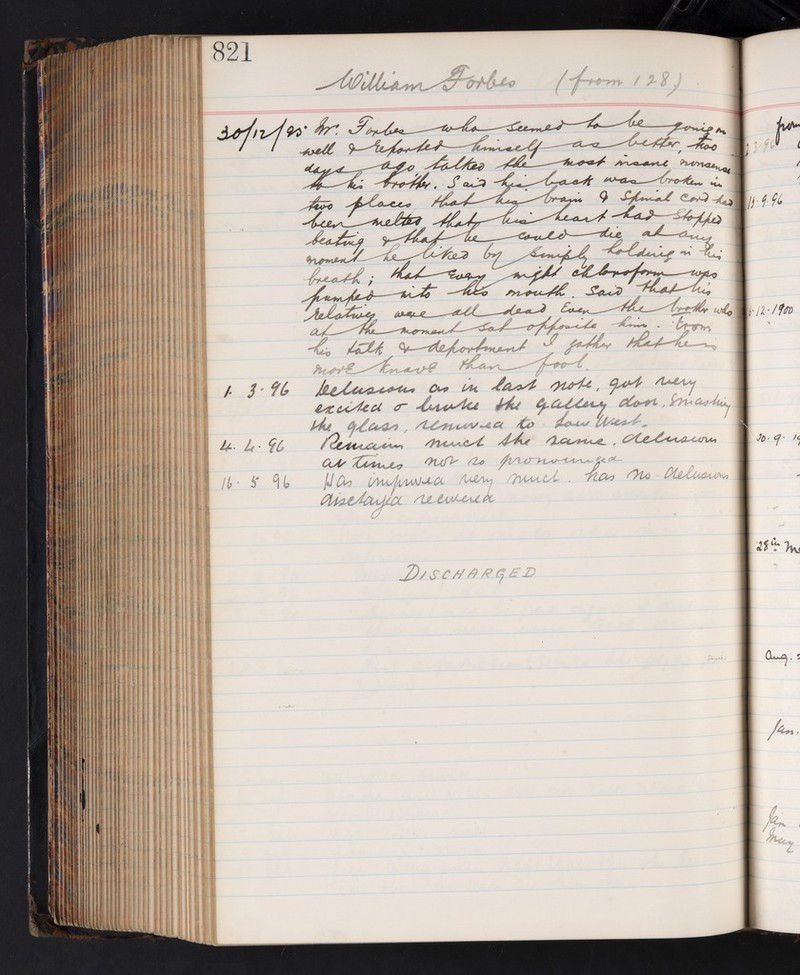 821
William Forbes (from 128)
30/12/95 Mr. Forbes who seemed to be going on
well & reported himself as better, two
days ago talked the most insane nonsense
to his brother. Said his back was broken in
two places that his brain & Spinal Cord had
been melted that his heart had stopped
beating & that he could die at any
moment he liked by simply holding in his
breath; that every night chloroform was
pumped into his mouth. Said that his
relatives were all dead Even the brother who
at the moment sat opposite him. From
his talk & deportment I gather that he is
more knave than fool.
1. 3. 96 Delusions as in last note, got very
excited & broke the gallery door, smashing
the glass, removed to Low West.
4. 4. 96 Remains much the same. delusions
at times not so pronounced
16. 5 96 Has improved very much. has no delusions
discharged recovered
DISCHARGED
from
2.3.96
18.9.96
6.12.1900
30.9.19
28th
Aug.
Jan.
Jan
May